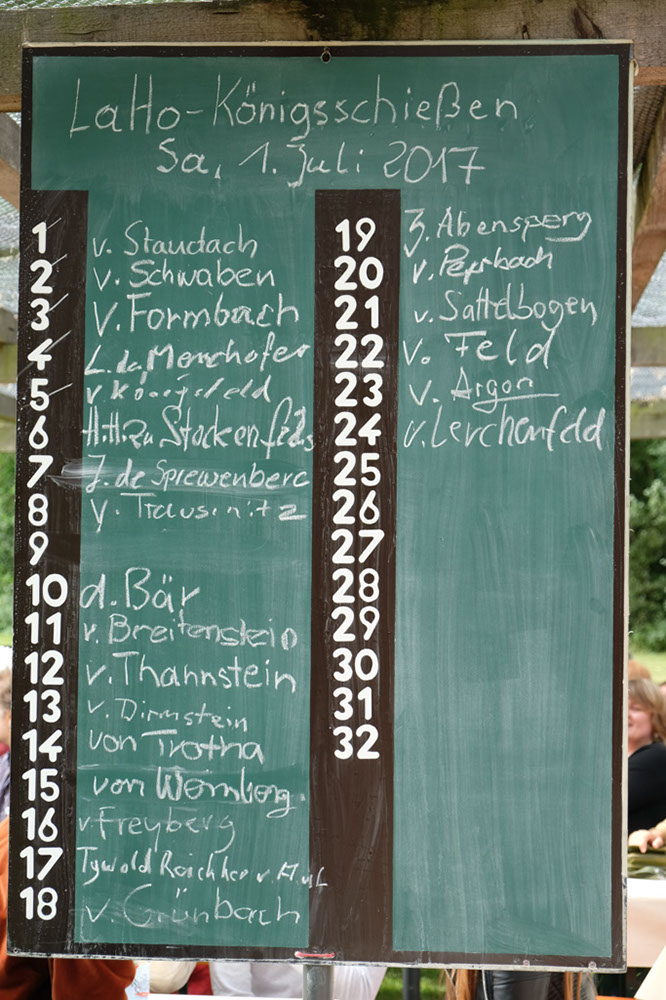 LaHo-Königsschießen
Sa, 1. Juli 2017
1 v. Staudach
2 v. Schwaben
3 v. Formbach
4 L. da Menchofer
5 v. Königsfeld
6 H.H. zu Stockenfels
7 J. de Sprewenberc
8 v. Trausnitz
9
10 d. Bär
11 v. Breitenstein
12 v. Thannstein
13 v. Dirmstein
14 von Trotha
15 von Wornberg.
16 v Freyberg
17 Tywold v.
18 v. Grünbach
19 z. Abensperg
20 v.
21 v. Sattelbogen
22 v. Feld
23 v. Argon
24 v. Lerchenfeld
25
26
27
28
29
30
31
32